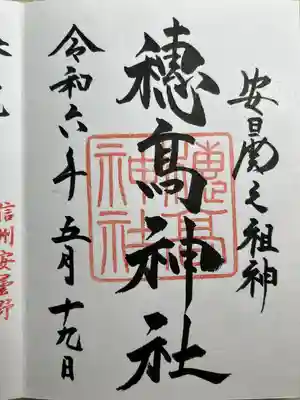 安曇之祖神
穂髙神社
穂髙神社
令和六年五月十九日
信州安曇野